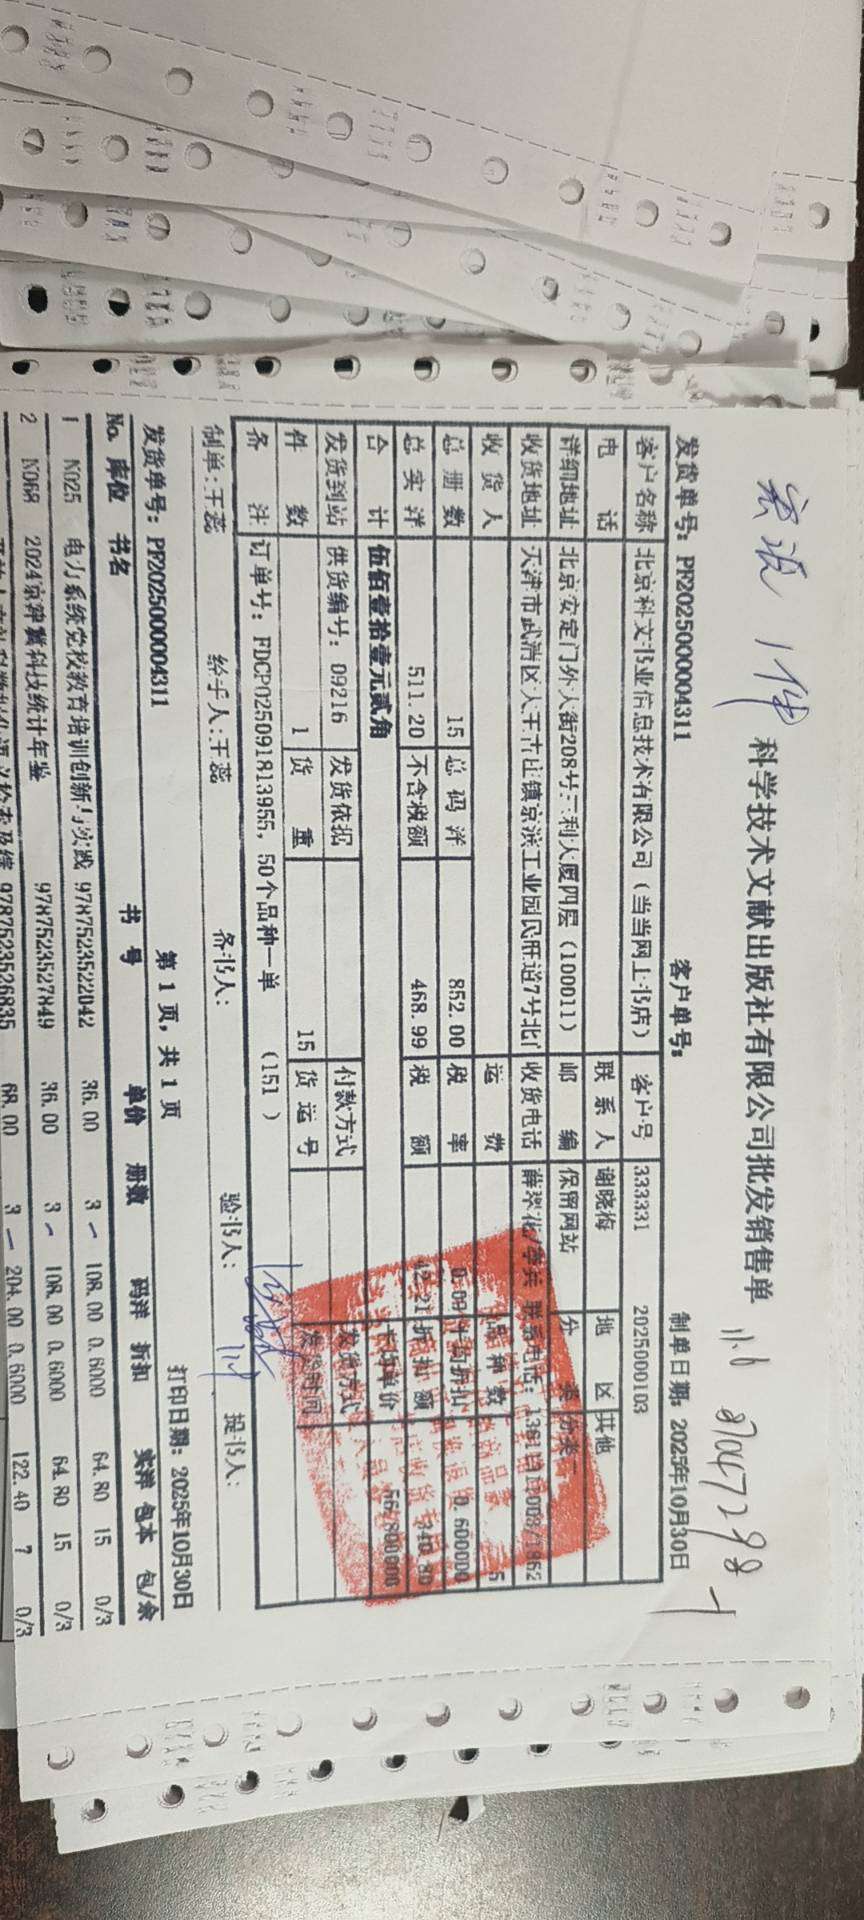 科学技术文献出版社有限公司批发销售单
发货单号：PF2025000004311 客户单号： 制单日期：2025年10月30日
客户名称 北京科文书业信息技术有限公司（当当网上书店） 客户号 333331 2025000103
电 话 联系人 谢晓梅 地 区 其他
详细地址 北京安定门外大街208号三利大厦四层（100011） 邮 编 保留网站 分 类 分类一
收货地址 天津市武清区大王古庄镇京滨工业园民旺道7号北门 收货电话
收 货 人 运 费 品 种 数 5
总 册 数 15 总 码 洋 852.00 税 率 平均折扣 0.600000
总 实 洋 511.20 不含税额 468.99 税 额 42.21 折 扣 额 340.80
合 计 伍佰壹拾壹元贰角 平均单价 56.800000
发货到站 供货编号：09216 发货依据 付款方式 发货方式
件 数 1 货 重 15 货 运 号 发货时间
备 注 订单号：FDCP025091813955，50个品种一单 （151 ）
制单：王蕊 经手人：王蕊 备书人： 验书人： 提书人：
第 1 页，共 1 页
发货单号：PF2025000004311 打印日期：2025年10月30日
No. 库位 书名 书 号 单价 册数 码洋 折扣 实洋 包本 包/余
1 N025 电力系统党校教育培训创新与实践 9787523522042 36.00 3 108.00 0.6000 64.80 15 0/3
2 N068 2024京津冀科技统计年鉴 9787523527849 36.00 3 108.00 0.6000 64.80 15 0/3
9787523526835 68.00 3 204.00 0.6000 122.40 7 0/3